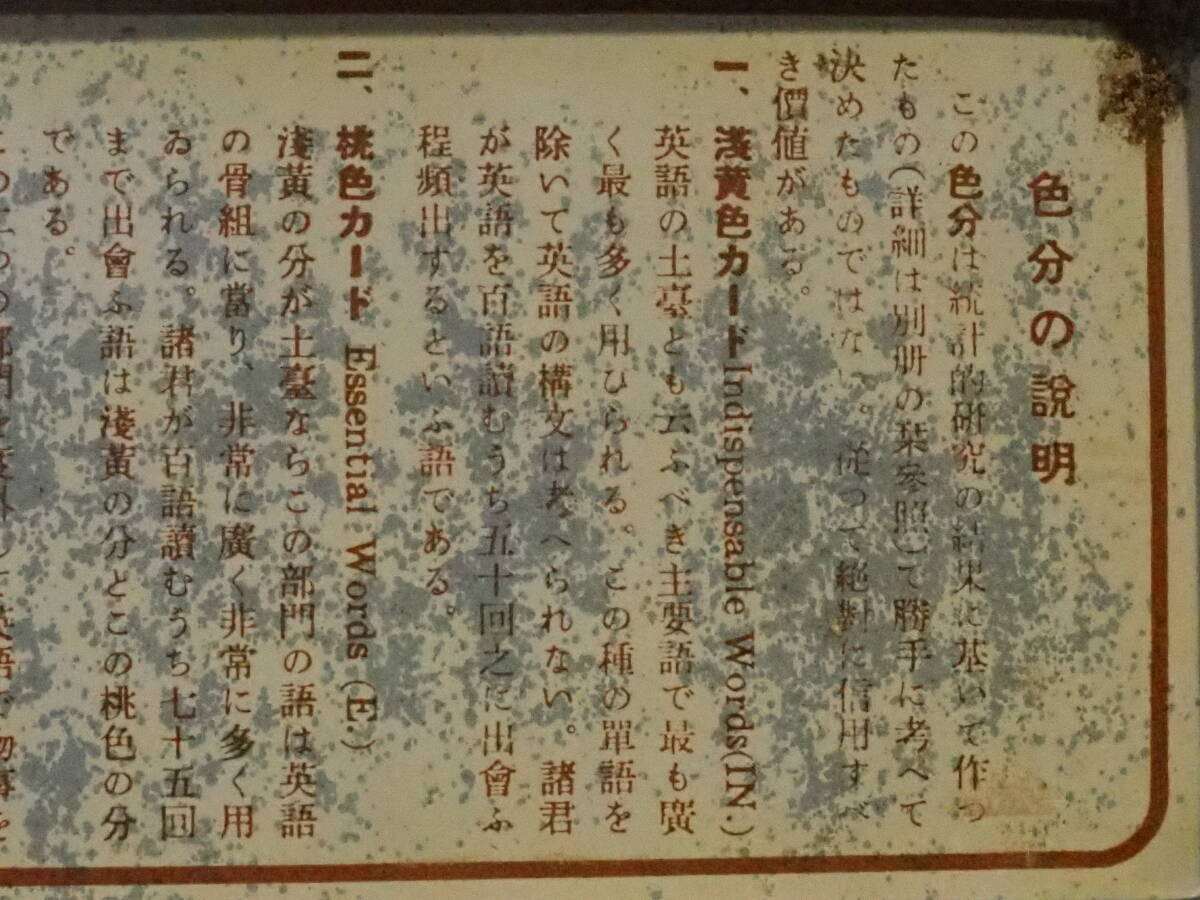 色分の説明
この色分は統計的研究の結果に基いて作つ
たもの（詳細は別册の栞參照）で勝手に考へて
決めたものではない。從つて絶對に信用すべ
き價値がある。
一、淺黄色カード Indispensable Words(IN.)
英語の土臺とも云ふべき主要語で最も廣
く最も多く用ひられる。この種の單語を
除いて英語の構文は考へられない。諸君
が英語を百語讀むうち五十回之に出會ふ
程頻出するといふ語である。
二、桃色カード Essential Words (E.)
淺黄の分が土臺ならこの部門の語は英語
の骨組に當り、非常に廣く非常に多く用
ゐられる。諸君が百語讀むうち七十五回
まで出會ふ語は淺黄の分とこの桃色の分
である。
この二つの部門を度外して英語で物事を